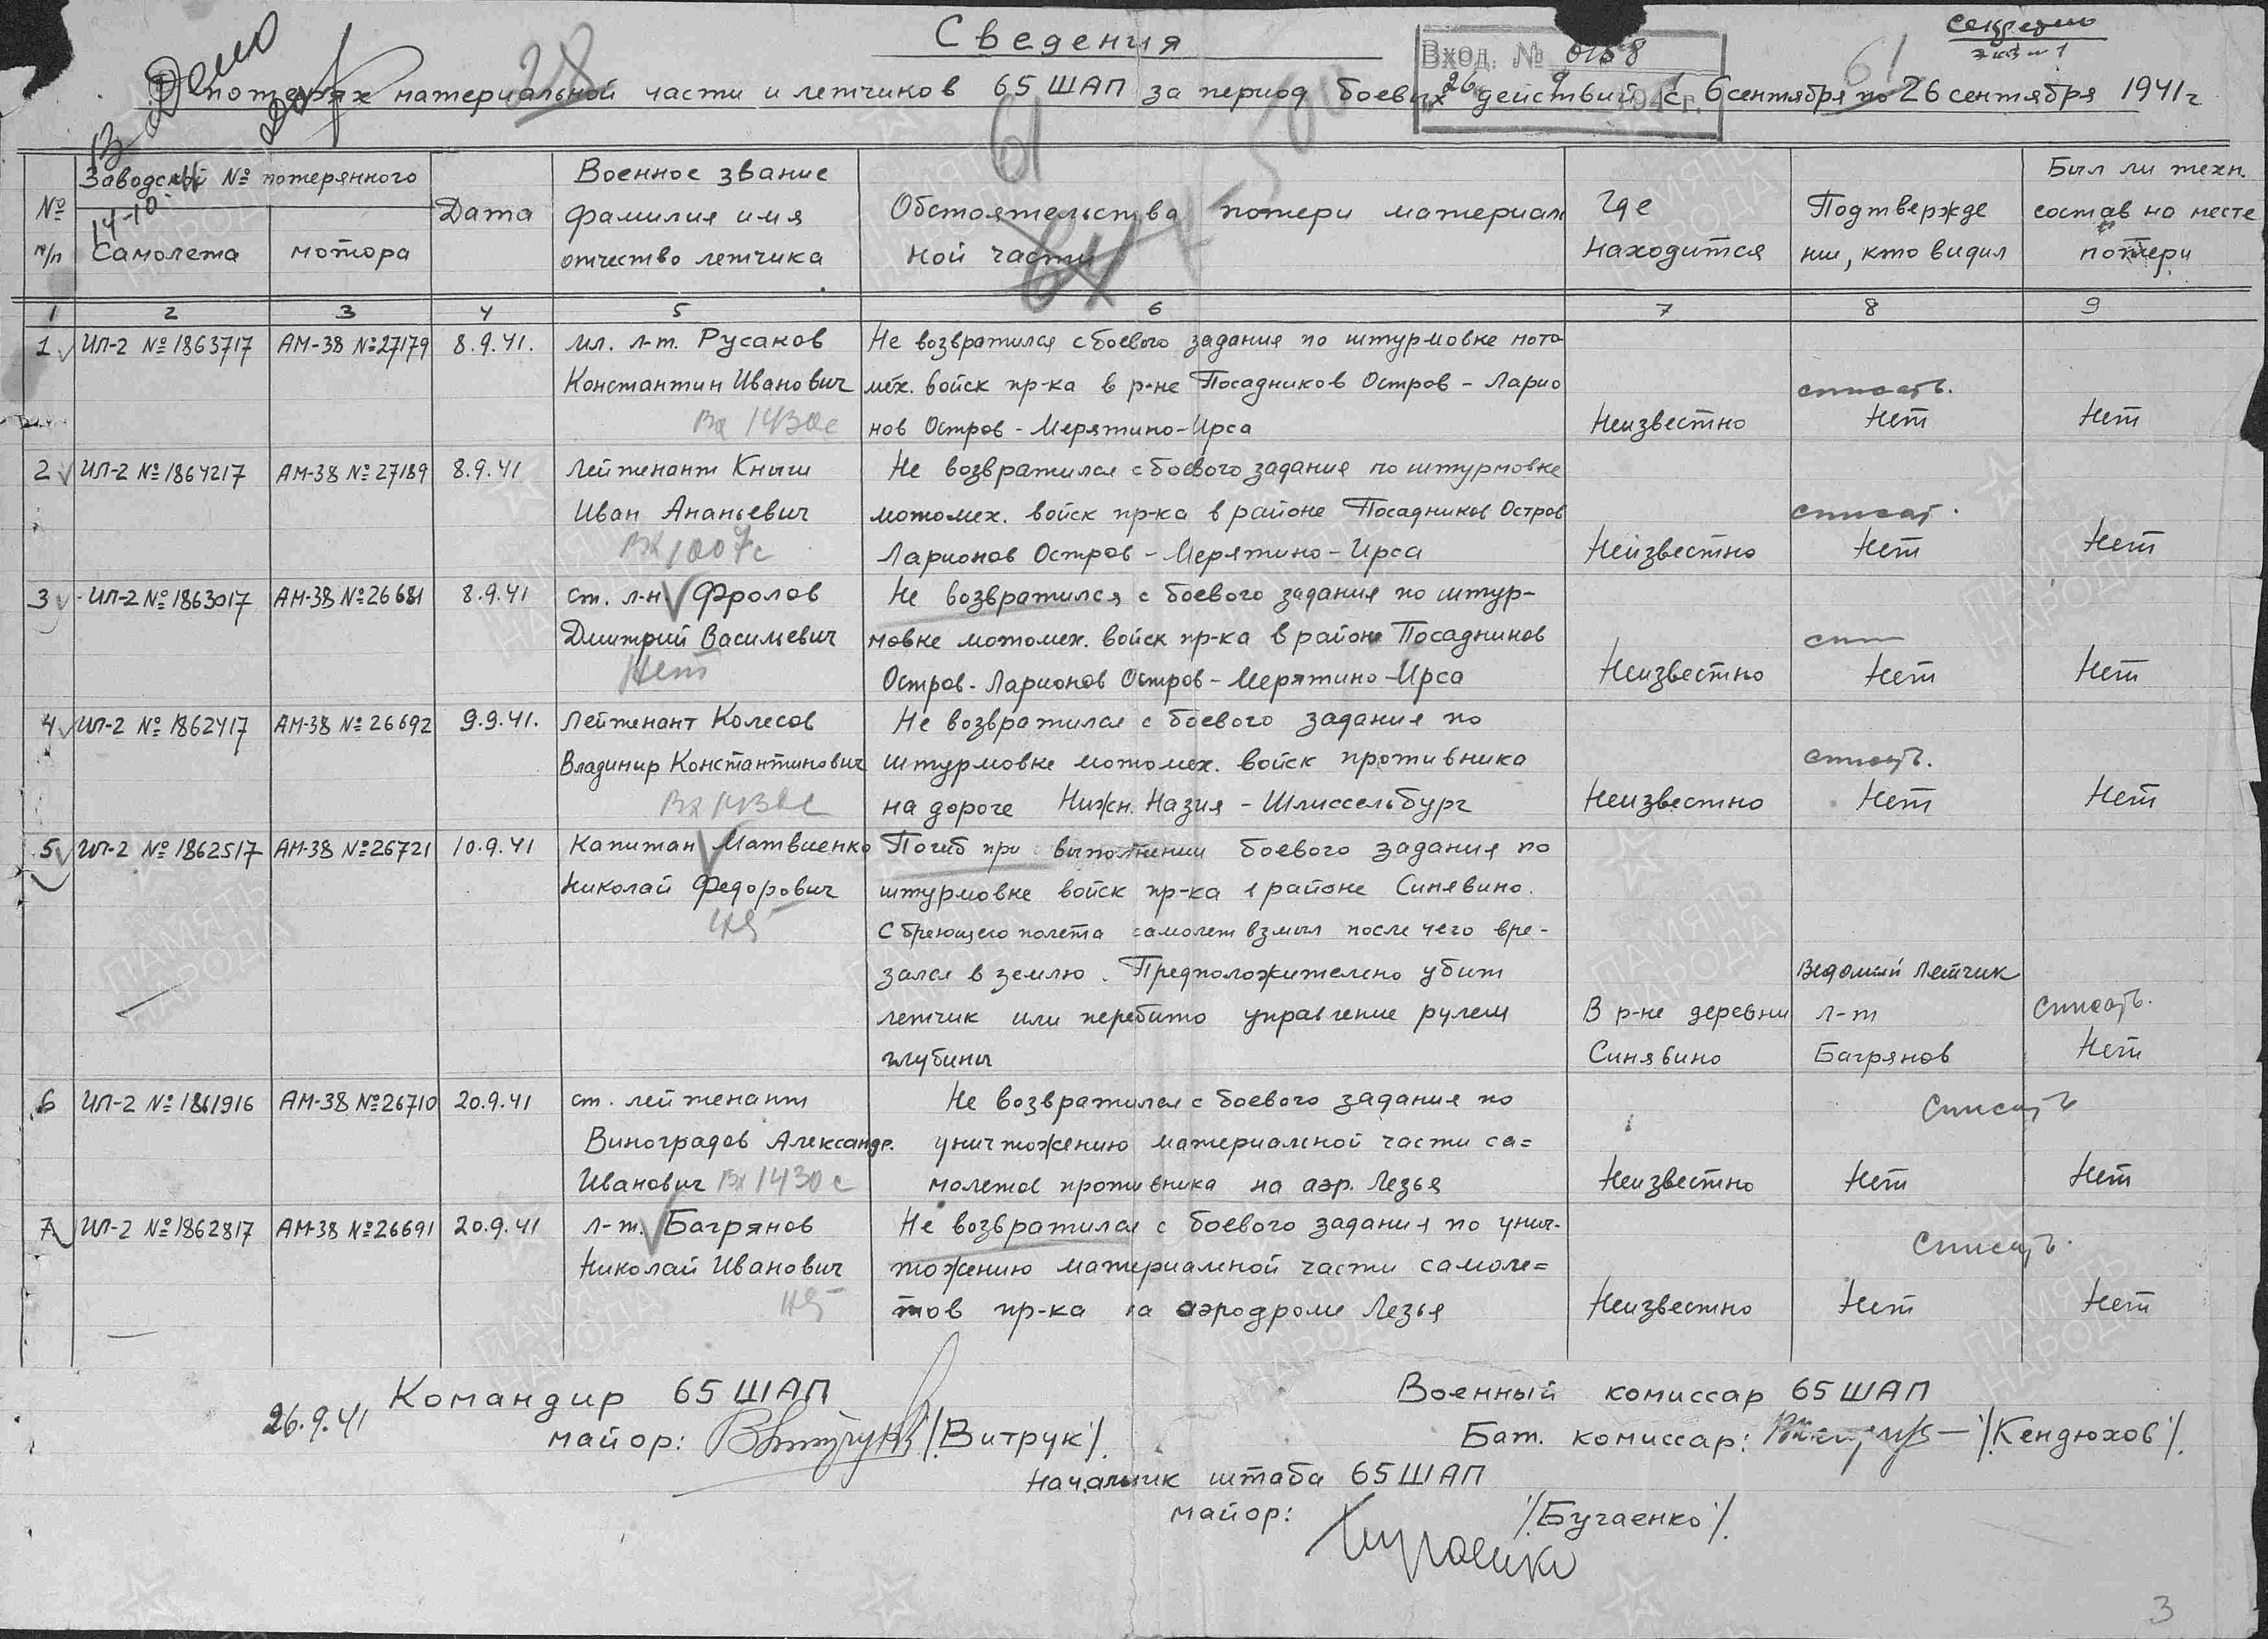 Сведения
Секретно
экз № 1
Вход. № 0158
28
В Дело
14-10
о потерях материальной части и летчиков 65 ШАП за период боевых действий с 6 сентября по 26 сентября 1941 г
26 9
61
61
64
№ п/п
Заводской № потерянного
Самолета
мотора
Дата
Военное звание
фамилия имя
отчество летчика
Обстоятельства потери материал
ной части
Где
находится
Подтвержде
ния, кто видил
Был ли техн.
состав на месте
потери
1 2 3 4 5 6 7 8 9
1 ИЛ-2 № 1863717 АМ-38 № 27179 8.9.41. мл. л-т. Русаков Не возвратился с боевого задания по штурмовке мото
Константин Иванович мех. войск пр-ка в р-не Посадников Остров - Ларио списать.
Вх 1430с нов Остров - Мерятино - Ирса Неизвестно Нет Нет
2 ИЛ-2 № 1864217 АМ-38 № 27189 8.9.41 Лейтенант Кныш Не возвратился с боевого задания по штурмовке
Иван Ананьевич мотомех. войск пр-ка в районе Посадников Остров списать.
Вх 1007с Ларионов Остров - Мерятино - Ирса Неизвестно Нет Нет
3 ИЛ-2 № 1863017 АМ-38 № 26681 8.9.41 ст. л-н Фролов Не возвратился с боевого задания по штур-
Дмитрий Васильевич мовке мотомех. войск пр-ка в районе Посадников
Нет Остров - Ларионов Остров - Мерятино - Ирса Неизвестно Нет Нет
4 ИЛ-2 № 1862417 АМ-38 № 26692 9.9.41. Лейтенант Колесов Не возвратился с боевого задания по
Владимир Константинович штурмовке мотомех. войск противника списать.
Вх 1430с на дороге Нижн. Назия - Шлиссельбург Неизвестно Нет Нет
5 ИЛ-2 № 1862517 АМ-38 № 26721 10.9.41 Капитан Матвиенко Погиб при выполнении боевого задания по
Николай Федорович штурмовке войск пр-ка в районе Синявино.
С бреющего полета самолет взмыл после чего вре-
зался в землю. Предположительно убит Ведомый летчик
летчик или перебито управление рулем В р-не деревни л-т Списать.
глубины Синявино Багрянов Нет
6 ИЛ-2 № 1861916 АМ-38 № 26710 20.9.41 ст. лейтенант Не возвратился с боевого задания по Списать
Виноградов Александр. уничтожению материальной части са=
Иванович Вх 1430с молетов противника на аэр. Лезья Неизвестно Нет Нет
7 ИЛ-2 № 1862817 АМ-38 № 26691 20.9.41 л-т. Багрянов Не возвратился с боевого задания по унич- Списать.
Николай Иванович тожению материальной части самоле=
тов пр-ка на аэродроме Лезья Неизвестно Нет Нет
Командир 65 ШАП
26.9.41
майор: /Витрук/.
Военный комиссар 65 ШАП
Бат. комиссар: /Кендюхов/.
Начальник штаба 65 ШАП
майор: /Бугаенко/.
3
ПАМЯТЬ НАРОДА